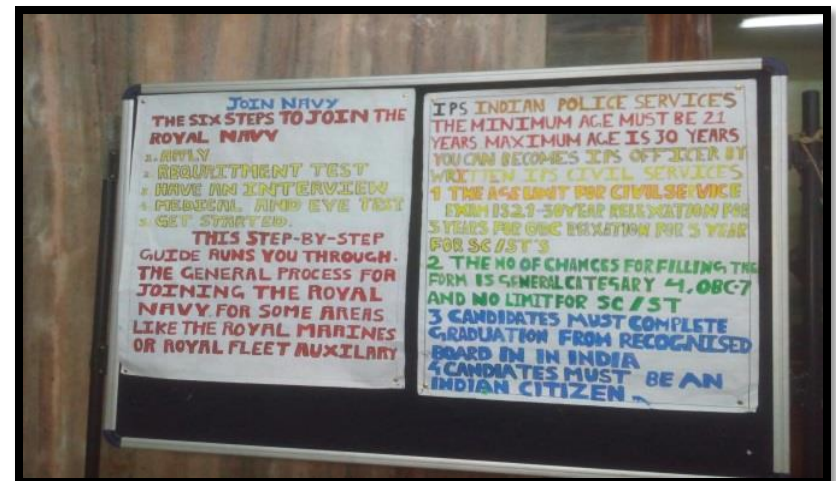 JOIN NAVY
THE SIX STEPS TO JOIN THE
ROYAL NAVY
1. APPLY
2. REQURITMENT TEST
3. HAVE AN INTERVIEW
4. MEDICAL AND EYE TEST
5. GET STARTED.
THIS STEP-BY-STEP
GUIDE RUNS YOU THROUGH.
THE GENERAL PROCESS FOR
JOINING THE ROYAL
NAVY. FOR SOME AREAS
LIKE THE ROYAL MARINES
OR ROYAL FLEET AUXILARY
IPS INDIAN POLICE SERVICES
THE MINIMUM AGE MUST BE 21
YEARS MAXIMUM AGE IS 30 YEARS
YOU CAN BECOMES IPS OFFICER BY
WRITTEN IPS CIVIL SERVICES
1 THE AGE LIMIT FOR CIVIL SERVICE
EXAM IS 21-30 YEAR RELEXATION FOR
3 YEARS FOR OBC RELXATION FOR 5 YEAR
FOR SC/ST'S
2 THE NO OF CHANCES FOR FILLING THE
FORM IS GENERAL CATEGARY 4. OBC-7
AND NO LIMIT FOR SC/ST
3 CANDIDATES MUST COMPLETE
GRADUATION FROM RECOGNISED
BOARD IN IN INDIA
4 CANDIATES MUST BE AN
INDIAN CITIZEN